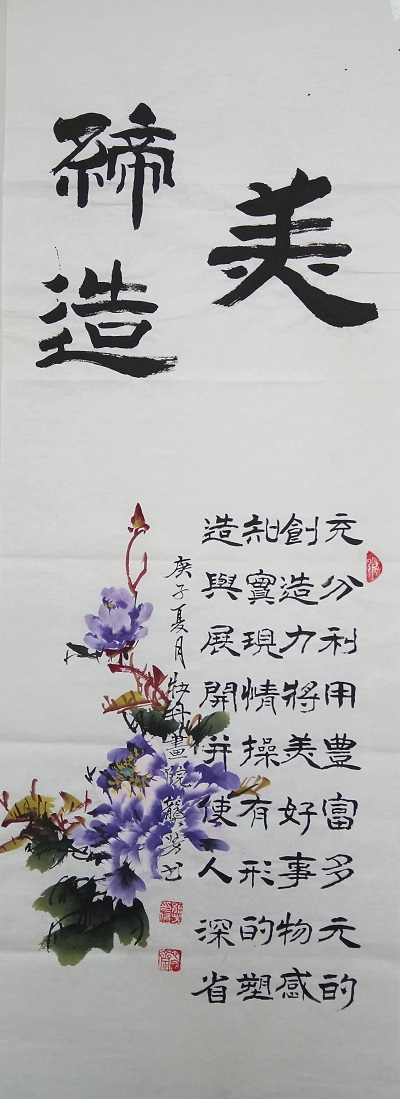 美
締造
充分利用豊富多元的
創造力將美好事物感
知實現情操有形的塑
造與展開并使人深省
庚子夏月牡丹畫院